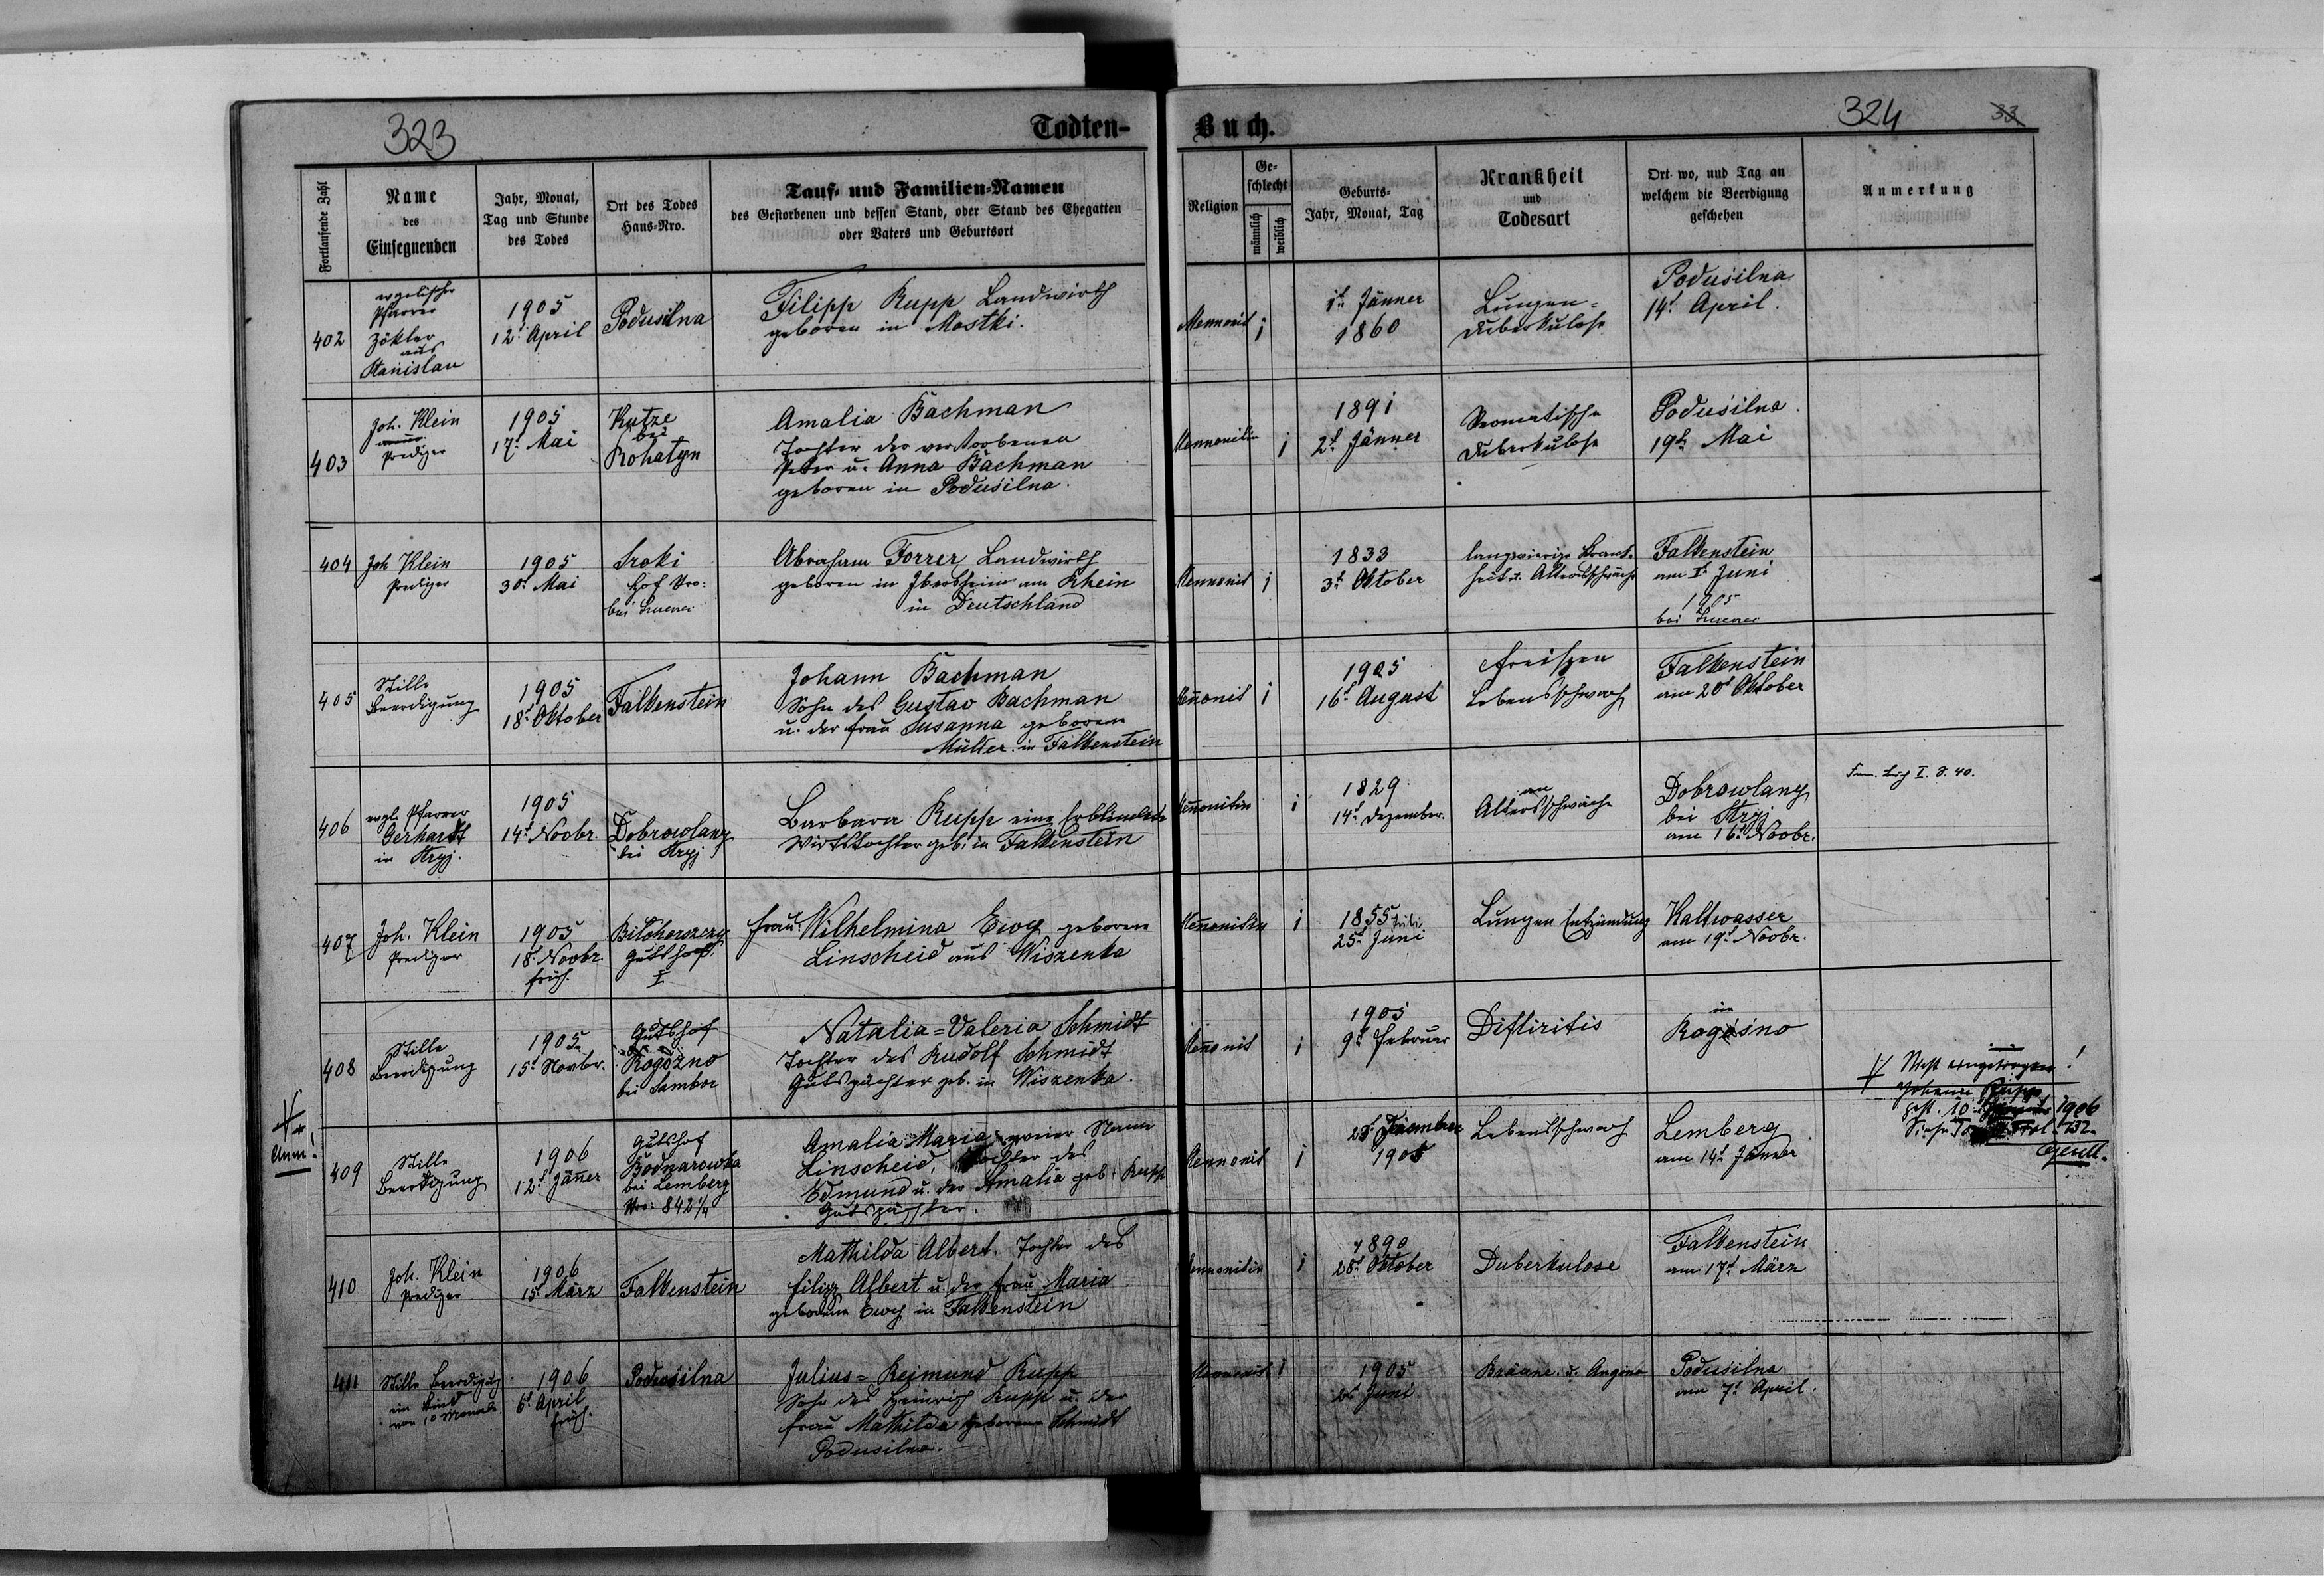 323
324
33
Todten-
Buch.
Fortlaufende Zahl
Name
des
Einsegnenden
Jahr, Monat,
Tag und Stunde
des Todes
Ort des Todes
Haus-Nro.
Tauf- und Familien-Namen
des Gestorbenen und dessen Stand, oder Stand des Ehegatten
oder Vaters und Geburtsort
Religion
Ge-
schlecht
männlich
weiblich
Geburts-
Jahr, Monat, Tag
Krankheit
und
Todesart
Ort wo, und Tag an
welchem die Beerdigung
geschehen
Anmerkung
402
Pfarrer
Zökler
aus
Stanislau
1905
12t April
Podusilna
Filipp Rupp Landwirth
geboren in Mostki.
Mennonit
1t Jänner
1860
Lungen=
Duberkulose
Podusilna
14t April.
403
Joh. Klein
Prediger
1905
17t Mai
Kutze
bei
Rohatyn
Amalia Bachman
Tochter der verstorbenen
Peter u. Anna Bachman
geboren in Podusilna.
Mennonitin
1891
2t Jänner
Duberkulose
Podusilna
19t Mai
404
Joh Klein
Prediger
1905
30t Mai
Sroki
Hof Nro:
bei
Abraham Forrer Landwirth
geboren in Ibersheim am Rhein
in Deutschland
Mennonit
1833
3t Oktober
langwierige Krank-
heit u. Altersschwäche
Falkenstein
am 1t Juni
1905
bei
405
Stille
Beerdigung
1905
18t Oktober
Falkenstein
Johann Bachman
Sohn des Gustav Bachman
u. der Frau Susanna geboren
Müller in Falkenstein
Menonit
1905
16t August
Freisen
Lebensschwach
Falkenstein
am 20t Oktober
406
evgl. Pfarrer
Gerhardt
in Stryj.
1905
14t Novbr.
Dobrowlany
bei Stryj
Barbara Rupp eine erblindete
Wirtstochter geb. in Falkenstein
Menonitin
1829
14t Dezember.
an
Altersschwäche
Dobrowlany
bei Stryj
am 16t Novbr.
Fam. Buch I. S. 40.
407
Joh. Klein
Prediger
1905
18t Novbr.
früh.
Bilohorszczy
Gutshof
I
Frau Wilhelmina Ewy geboren
Linscheid aus Wiszenka
Menonitin
1855 Juli
25t Juni
Lungen Entzündung
Kaltwasser
am 19t Novbr.
408
Stille
Beerdigung
1905
15t Novbr.
Gutshof
Rogozno
bei Sambor
Natalia=Valeria Schmidt
Tochter des Rudolf Schmidt
Gutspächter geb. in Wiszenka.
Menonit
1905
9t Februar
Difliritis
in
Rogósno
Anm!
409
Stille
Beerdigung
1906
12t Jänner
Gutshof
Bodnarowka
bei Lemberg
Nro: 842 1/4
Amalia Maria zweier Name
Linscheid, Tochter des
Edmund u. der Amalia geb. Rupp
Gutspächter.
Mennonit
1905
Lebensschwach
Lemberg
am 14t Jänner
Nicht eingetragen!
Johann Rupp
gest. 10 1906
132.
410
Joh. Klein
Prediger
1906
15t März
Falkenstein
Mathilda Albert. Tochter des
Filipp Albert u. der Frau Maria
geborene Ewy in Falkenstein
Mennonitin
1890
28t Oktober
Duberkulose
Falkenstein
am 17t März
411
Stille Beerdigung
ein Kind
von 10 Monate
1906
6t April
früh.
Podusilna
Julius=Reimund Rupp
Sohn des Heinrich Rupp u. der
Frau Mathilda geborene Schmidt
Podusilna.
Mennonit
1905
Juni
Bräune u. Angina
Podusilna
am 7t April.